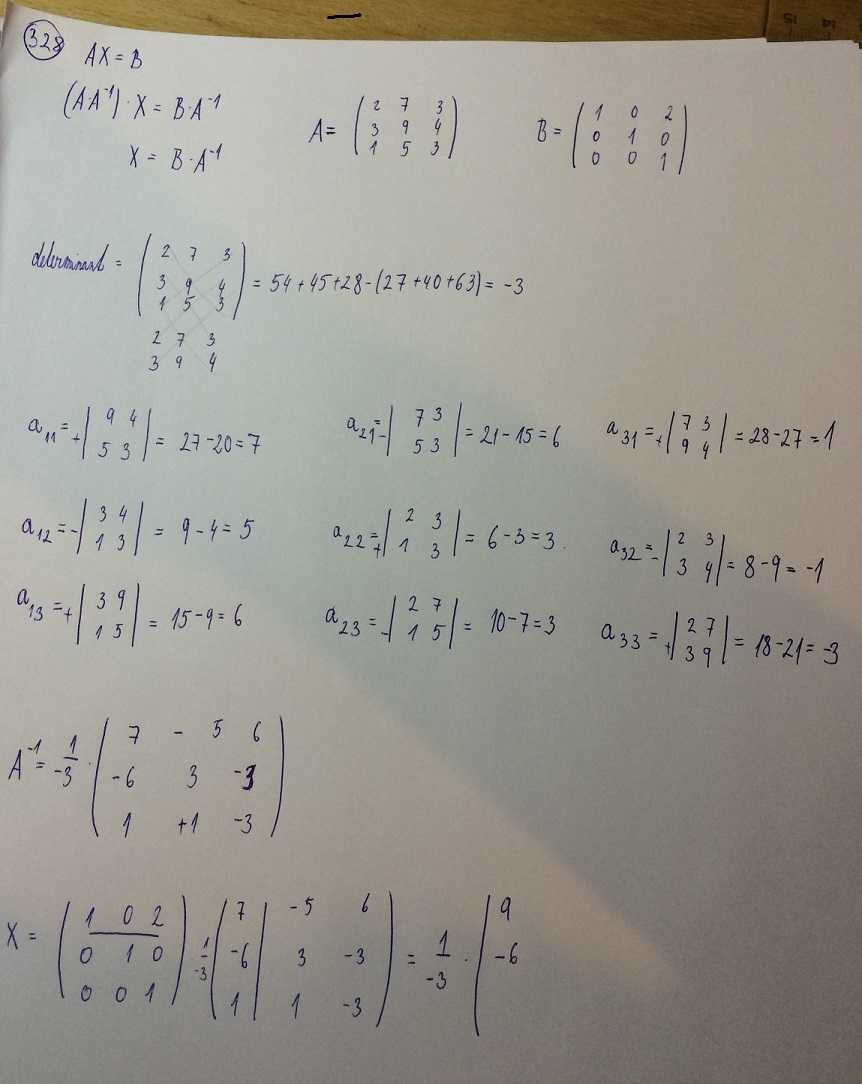 328 AX = B
(AA⁻¹)·X = B·A⁻¹
X = B·A⁻¹
A = ( 2 7 3
3 9 4
1 5 3 )
B = ( 1 0 2
0 1 0
0 0 1 )
determinant = ( 2 7 3
3 9 4
1 5 3 ) = 54 + 45 + 28 - (27 + 40 + 63) = -3
2 7 3
3 9 4
a₁₁ = + | 9 4
5 3 | = 27 - 20 = 7
a₂₁ = - | 7 3
5 3 | = 21 - 15 = 6
a₃₁ = + | 7 3
9 4 | = 28 - 27 = 1
a₁₂ = - | 3 4
1 3 | = 9 - 4 = 5
a₂₂ = + | 2 3
1 3 | = 6 - 3 = 3
a₃₂ = - | 2 3
3 4 | = 8 - 9 = -1
a₁₃ = + | 3 9
1 5 | = 15 - 9 = 6
a₂₃ = - | 2 7
1 5 | = 10 - 7 = 3
a₃₃ = + | 2 7
3 9 | = 18 - 21 = -3
A⁻¹ = 1/-3 · ( 7 - 5 6
-6 3 -3
1 +1 -3 )
X = ( 1 0 2
0 1 0
0 0 1 ) · 1/-3 ( 7 | -5 6
-6 | 3 -3
1 | 1 -3 ) = 1/-3 · ( 9
-6
15 14